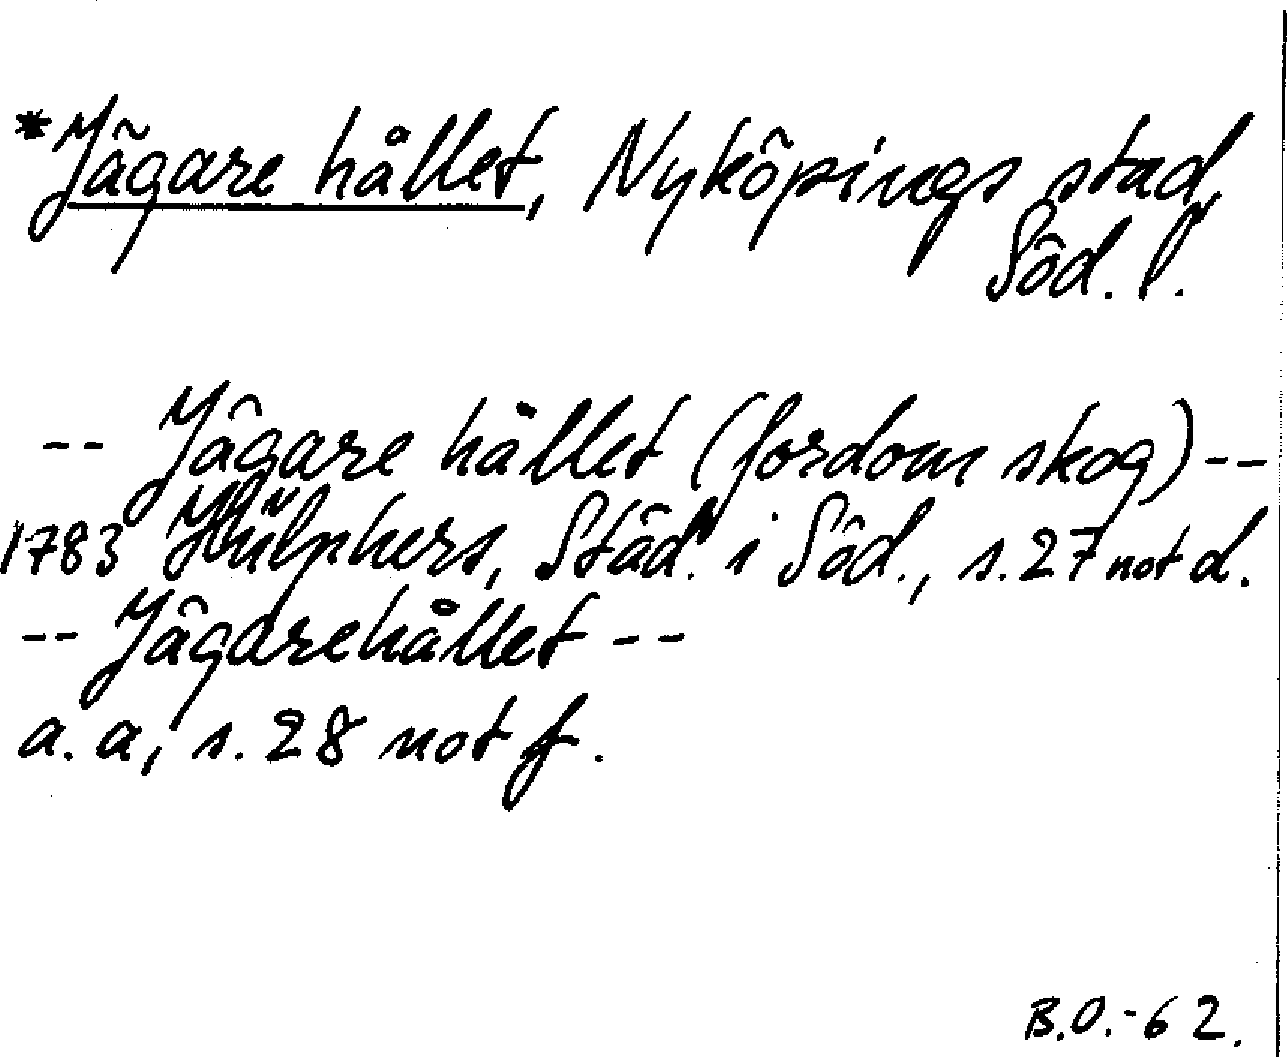 *Jägare hållet, Nyköpings stad,
Söd. l.
-- Jägare hållet (fordom skog) --
1783 Hülphers, Städ. i Söd., s. 27 not d.
-- Jägarehållet --
a. a, s. 28 not f.
B.O.-62.